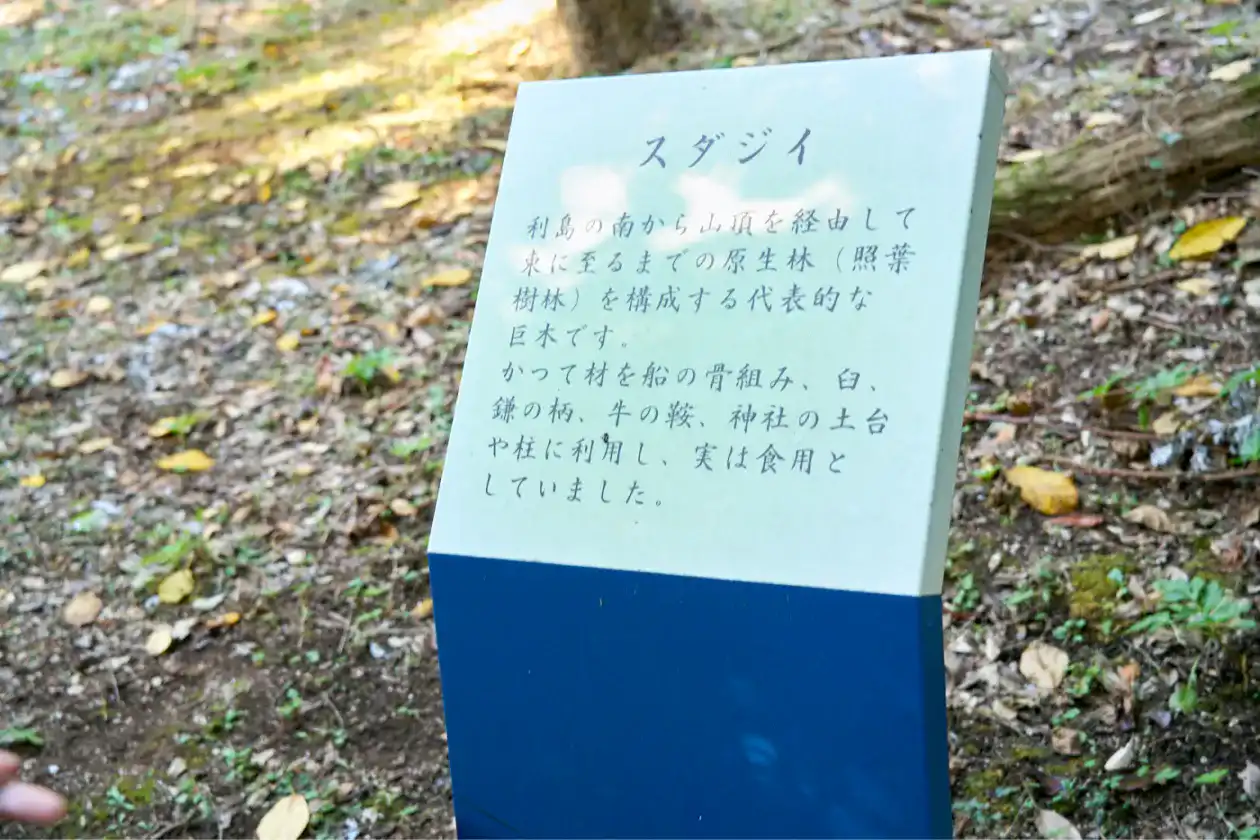 スダジイ
利島の南から山頂を経由して
東に至るまでの原生林（照葉
樹林）を構成する代表的な
巨木です。
かつて材を船の骨組み、臼、
鎌の柄、牛の鞍、神社の土台
や柱に利用し、実は食用と
していました。